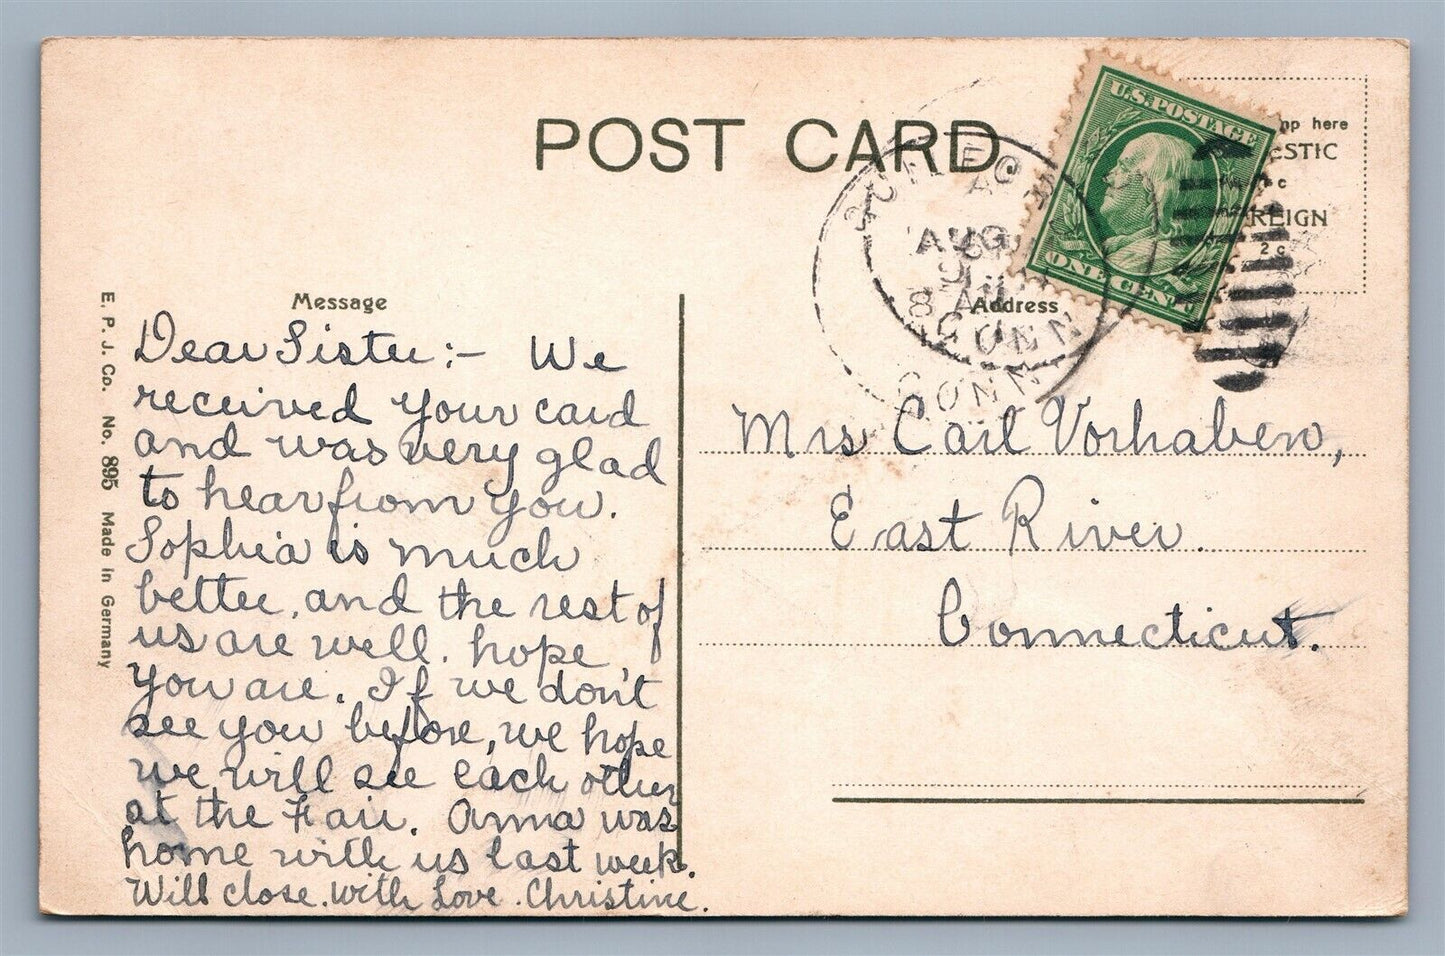 POST CARD.
U.S. POSTAGE
ONE CENT
here
REIGN
2c
AUG
8 A
CONN
CONN
Message
Address
E. P. J. Co. No. 895 Made in Germany
Dear Sister:- We
received your card
and was very glad
to hear from you.
Sophia is much
better, and the rest of
us are well. hope
you are. If we don't
see you before, we hope
we will see each other
at the Fair. Anna was
home with us last week.
Will close. with Love. Christine.
Mrs Carl Vorhaben,
East River.
Connecticut.